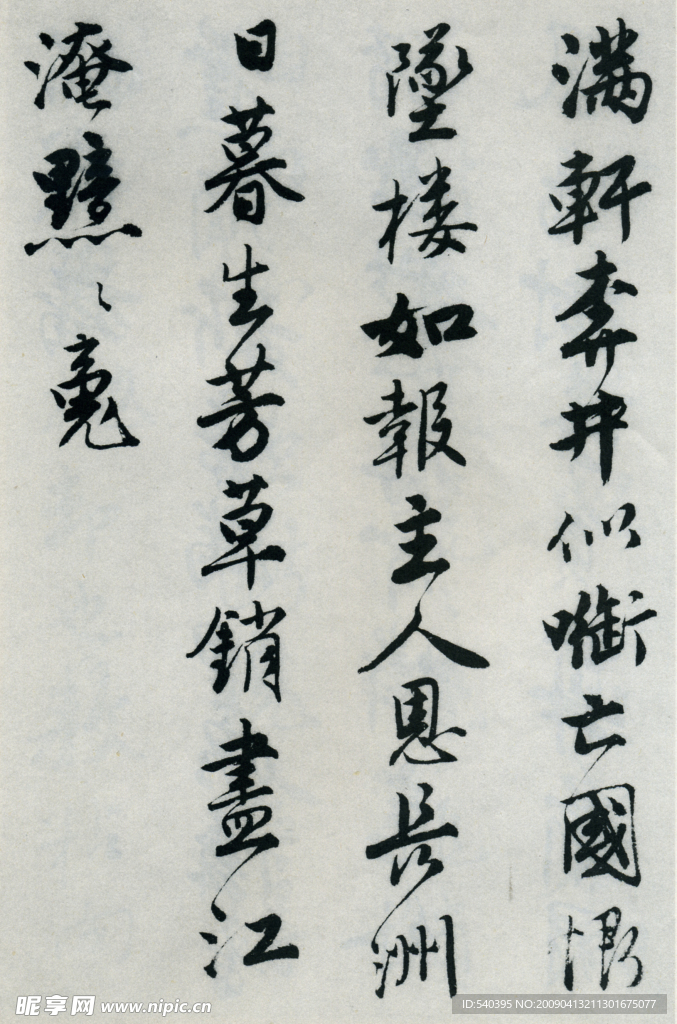 滿軒奔井似啣亡國恨
墜楼如報主人恩長洲
日暮生芳草銷盡江
淹黯々魂
昵享网 www.nipic.cn
ID:540395 NO:20090413211301675077